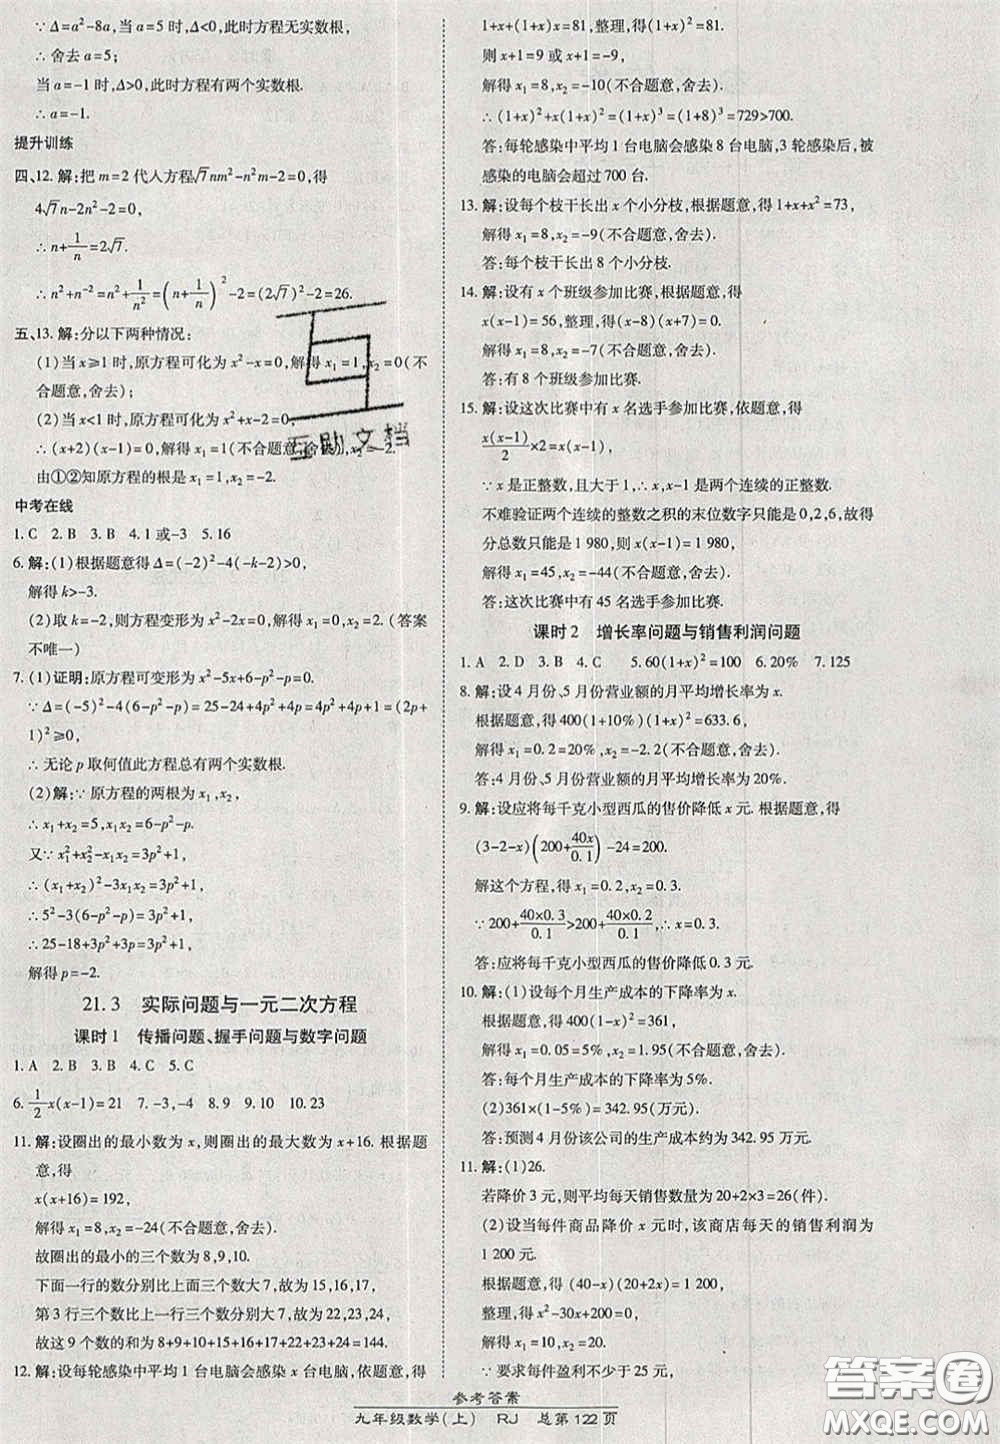 ∵Δ=a²-8a,当a=5时,Δ<0,此时方程无实数根,
∴舍去a=5;
当a=-1时,Δ>0,此时方程有两个实数根.
∴a=-1.
提升训练
四、12.解:把m=2代人方程√7nm²-n²m-2=0,得
4√7n-2n²-2=0,
∴n+1/n=2√7.
∴n²+n⁻²=n²+1/n²=(n+1/n)²-2=(2√7)²-2=26.
五、13.解:分以下两种情况:
(1)当x≥1时,原方程可化为x²-x=0,解得x₁=1,x₂=0(不
合题意,舍去);
(2)当x<1时,原方程可化为x²+x-2=0,
∴(x+2)(x-1)=0,解得x₁=1(不合题意,舍去),x₂=-2.
由①②知原方程的根是x₁=1,x₂=-2.
中考在线
1.C 2.B 3.B 4.1或-3 5.16
6.解:(1)根据题意得Δ=(-2)²-4(-k-2)>0,
解得k>-3.
(2)取k=-2,则方程变形为x²-2x=0,解得x₁=0,x₂=2.(答案
不唯一)
7.(1)证明:原方程可变形为x²-5x+6-p²-p=0.
∵Δ=(-5)²-4(6-p²-p)=25-24+4p²+4p=4p²+4p+1=(2p+
1)²≥0,
∴无论p取何值此方程总有两个实数根.
(2)解:∵原方程的两根为x₁,x₂,
∴x₁+x₂=5,x₁x₂=6-p²-p.
又∵x₁²+x₂²-x₁x₂=3p²+1,
∴(x₁+x₂)²-3x₁x₂=3p²+1,
∴5²-3(6-p²-p)=3p²+1,
∴25-18+3p²+3p=3p²+1,
解得p=-2.
21.3 实际问题与一元二次方程
课时1 传播问题、握手问题与数字问题
1.A 2.B 3.B 4.C 5.C
6.1/2x(x-1)=21 7.-3,-4 8.9 9.10 10.23
11.解:设圈出的最小数为x,则圈出的最大数为x+16.根据题
意,得
x(x+16)=192,
解得x₁=8,x₂=-24(不合题意,舍去).
故圈出的最小的三个数为8,9,10.
下面一行的数分别比上面三个数大7,故为15,16,17,
第3行三个数比上一行三个数分别大7,故为22,23,24,
故这9个数的和为8+9+10+15+16+17+22+23+24=144.
12.解:设每轮感染中平均1台电脑会感染x台电脑,依题意,得
1+x+(1+x)x=81,整理,得(1+x)²=81.
则x+1=9或x+1=-9,
解得x₁=8,x₂=-10(不合题意,舍去).
∴(1+x)²+x(1+x)²=(1+x)³=(1+8)³=729>700.
答:每轮感染中平均1台电脑会感染8台电脑,3轮感染后,被
感染的电脑会超过700台.
13.解:设每个枝干长出x个小分枝,根据题意,得1+x+x²=73,
解得x₁=8,x₂=-9(不合题意,舍去).
答:每个枝干长出8个小分枝.
14.解:设有x个班级参加比赛,根据题意,得
x(x-1)=56,整理,得(x-8)(x+7)=0.
解得x₁=8,x₂=-7(不合题意,舍去).
答:有8个班级参加比赛.
15.解:设这次比赛中有x名选手参加比赛,依题意,得
x(x-1)/2×2=x(x-1).
∵x是正整数,且大于1,∴x,x-1是两个连续的正整数.
不难验证两个连续的整数之积的末位数字只能是0,2,6,故得
分总数只能是1 980,则x(x-1)=1 980,
解得x₁=45,x₂=-44(不合题意,舍去).
答:这次比赛中有45名选手参加比赛.
课时2 增长率问题与销售利润问题
1.A 2.D 3.B 4.C 5.60(1+x)²=100 6.20% 7.125
8.解:设4月份、5月份营业额的月平均增长率为x.
根据题意,得400(1+10%)(1+x)²=633.6,
解得x₁=0.2=20%,x₂=-2.2(不合题意,舍去).
答:4月份、5月份营业额的月平均增长率为20%.
9.解:设应将每千克小型西瓜的售价降低x元.根据题意,得
(3-2-x)(200+40x/0.1)-24=200.
解这个方程,得x₁=0.2,x₂=0.3.
∵200+40×0.3/0.1>200+40×0.2/0.1,∴x=0.3.
答:应将每千克小型西瓜的售价降低0.3元.
10.解:(1)设每个月生产成本的下降率为x.
根据题意,得400(1-x)²=361,
解得x₁=0.05=5%,x₂=1.95(不合题意,舍去).
答:每个月生产成本的下降率为5%.
(2)361×(1-5%)=342.95(万元).
答:预测4月份该公司的生产成本约为342.95万元.
11.解:(1)26.
若降价3元,则平均每天销售数量为20+2×3=26(件).
(2)设当每件商品降价x元时,该商店每天的销售利润为
1 200元.
根据题意,得(40-x)(20+2x)=1 200,
整理,得x²-30x+200=0,
解得x₁=10,x₂=20.
∵要求每件盈利不少于25元,
参考答案
九年级数学(上) RJ 总第122页
互助文档
答案圈
MXQE.COM